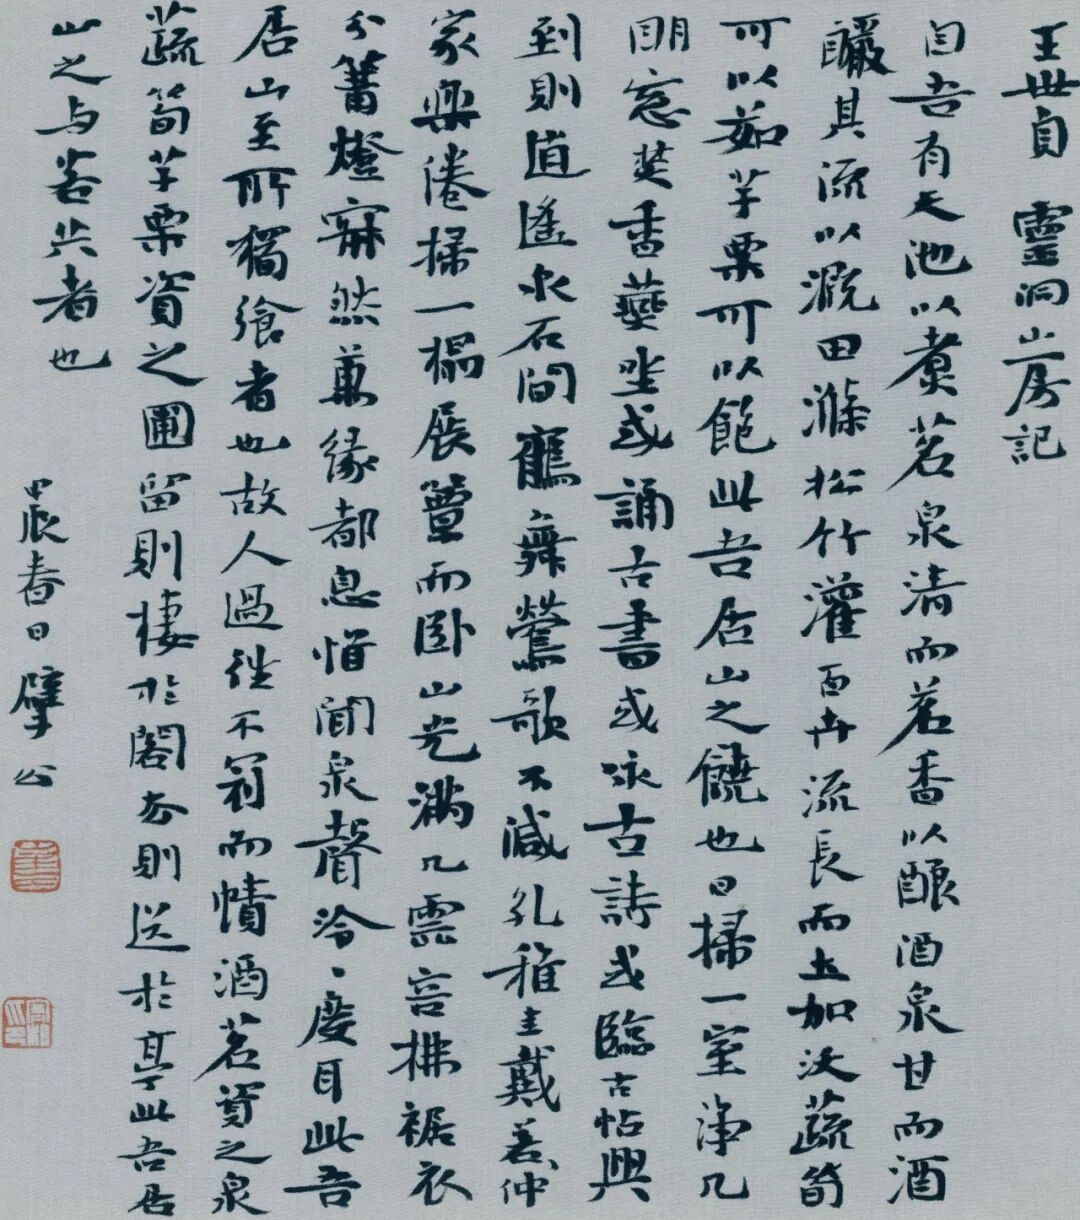 王世貞 靈洞山房記
自吾有天池以煮茗泉清而茗香以釀酒泉甘而酒
釅其流以溉田滌松竹灌百卉流長而土加沃蔬筍
可以茹芋栗可以飽此吾居山之饒也日掃一室淨几
明窓焚香坐或誦古書或咏古詩或臨古帖興
到則逍遙水石間舞鶯歌不減孔稚圭戴仲
家樂倦掃一榻展簟而臥山光滿几雲拂裾
分篝燈寂然萬緣都息惟聞泉聲泠〻度耳此吾
居山至所獨飨者也故人過從不而幘酒茗資之泉
蔬筍芋栗資之圃留則棲於閣去則送於亭此吾居
山之与客共者也
甲辰春日擘公